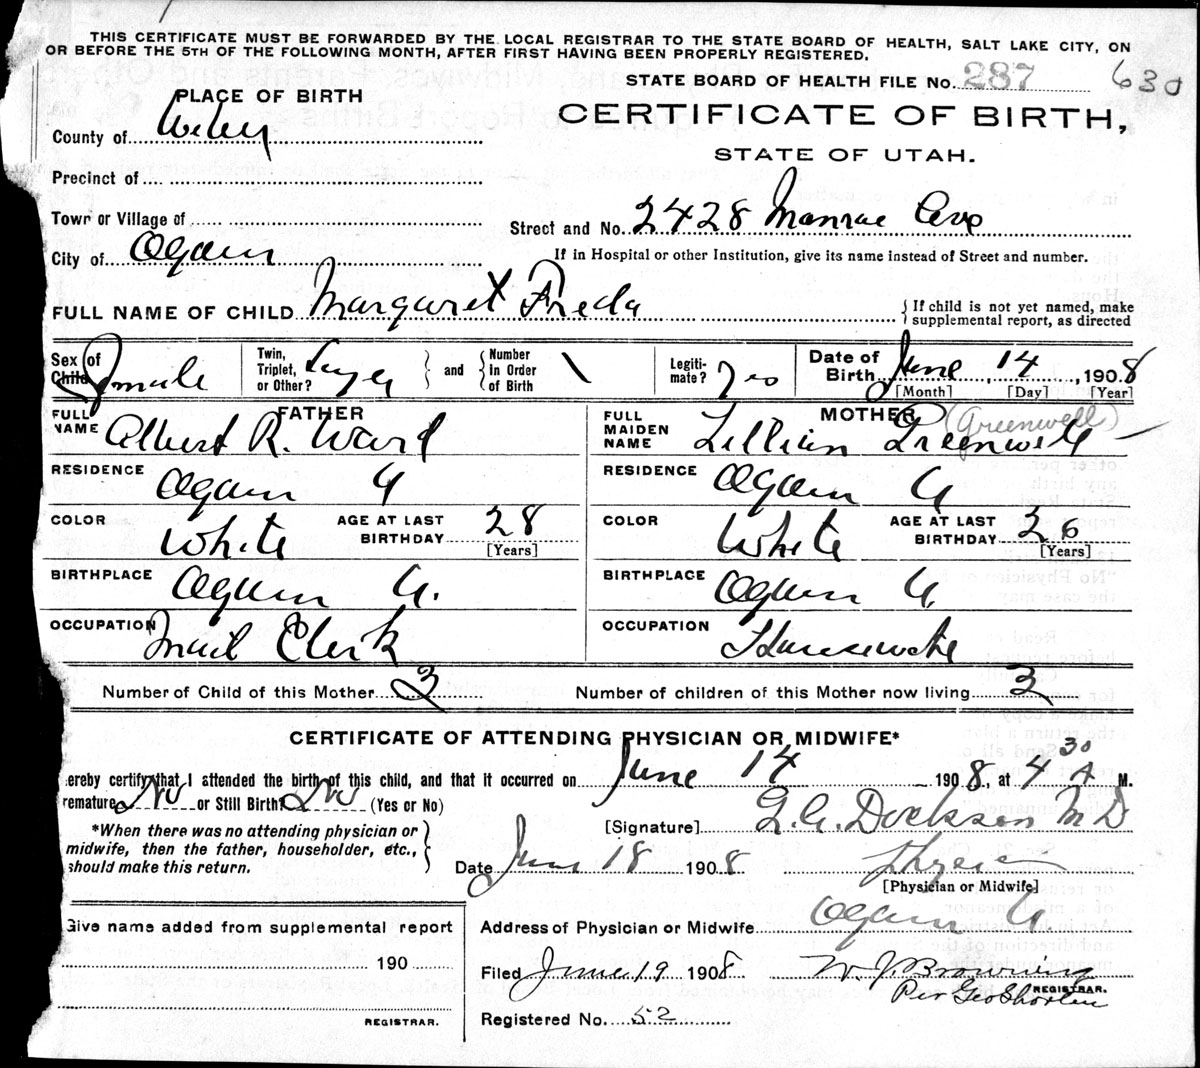 THIS CERTIFICATE MUST BE FORWARDED BY THE LOCAL REGISTRAR TO THE STATE BOARD OF HEALTH, SALT LAKE CITY, ON
OR BEFORE THE 5TH OF THE FOLLOWING MONTH, AFTER FIRST HAVING BEEN PROPERLY REGISTERED.
STATE BOARD OF HEALTH FILE No. 287 630
PLACE OF BIRTH
CERTIFICATE OF BIRTH,
County of Weber
STATE OF UTAH.
Precinct of
Town or Village of
Street and No. 2428 Monroe Ave
City of Ogden
If in Hospital or other Institution, give its name instead of Street and number.
FULL NAME OF CHILD Margaret Freda
If child is not yet named, make supplemental report, as directed
Sex of Child Female Twin, Triplet, or Other? Single and Number in Order of Birth 1 Legitimate? Yes Date of Birth June 14, 1908
[Month] [Day] [Year]
FATHER MOTHER (Greenwell)
FULL NAME Albert R. Ward FULL MAIDEN NAME Lillian Greenwell
RESIDENCE Ogden U RESIDENCE Ogden U
COLOR White AGE AT LAST BIRTHDAY 28 [Years] COLOR White AGE AT LAST BIRTHDAY 26 [Years]
BIRTHPLACE Ogden U. BIRTHPLACE Ogden U.
OCCUPATION Mail Clerk OCCUPATION Housewife
Number of Child of this Mother 3 Number of children of this Mother now living 3
CERTIFICATE OF ATTENDING PHYSICIAN OR MIDWIFE*
ereby certify that I attended the birth of this child, and that it occurred on June 14 1908, at 4 30 A M.
remature No or Still Birth? No (Yes or No)
*When there was no attending physician or
midwife, then the father, householder, etc.,
should make this return.
[Signature] M D
Date June 18 1908
[Physician or Midwife]
Give name added from supplemental report
Address of Physician or Midwife Ogden U
190
Filed June 19 1908 W J. Browning
REGISTRAR.
Per Geo Shorten
REGISTRAR.
Registered No. 52